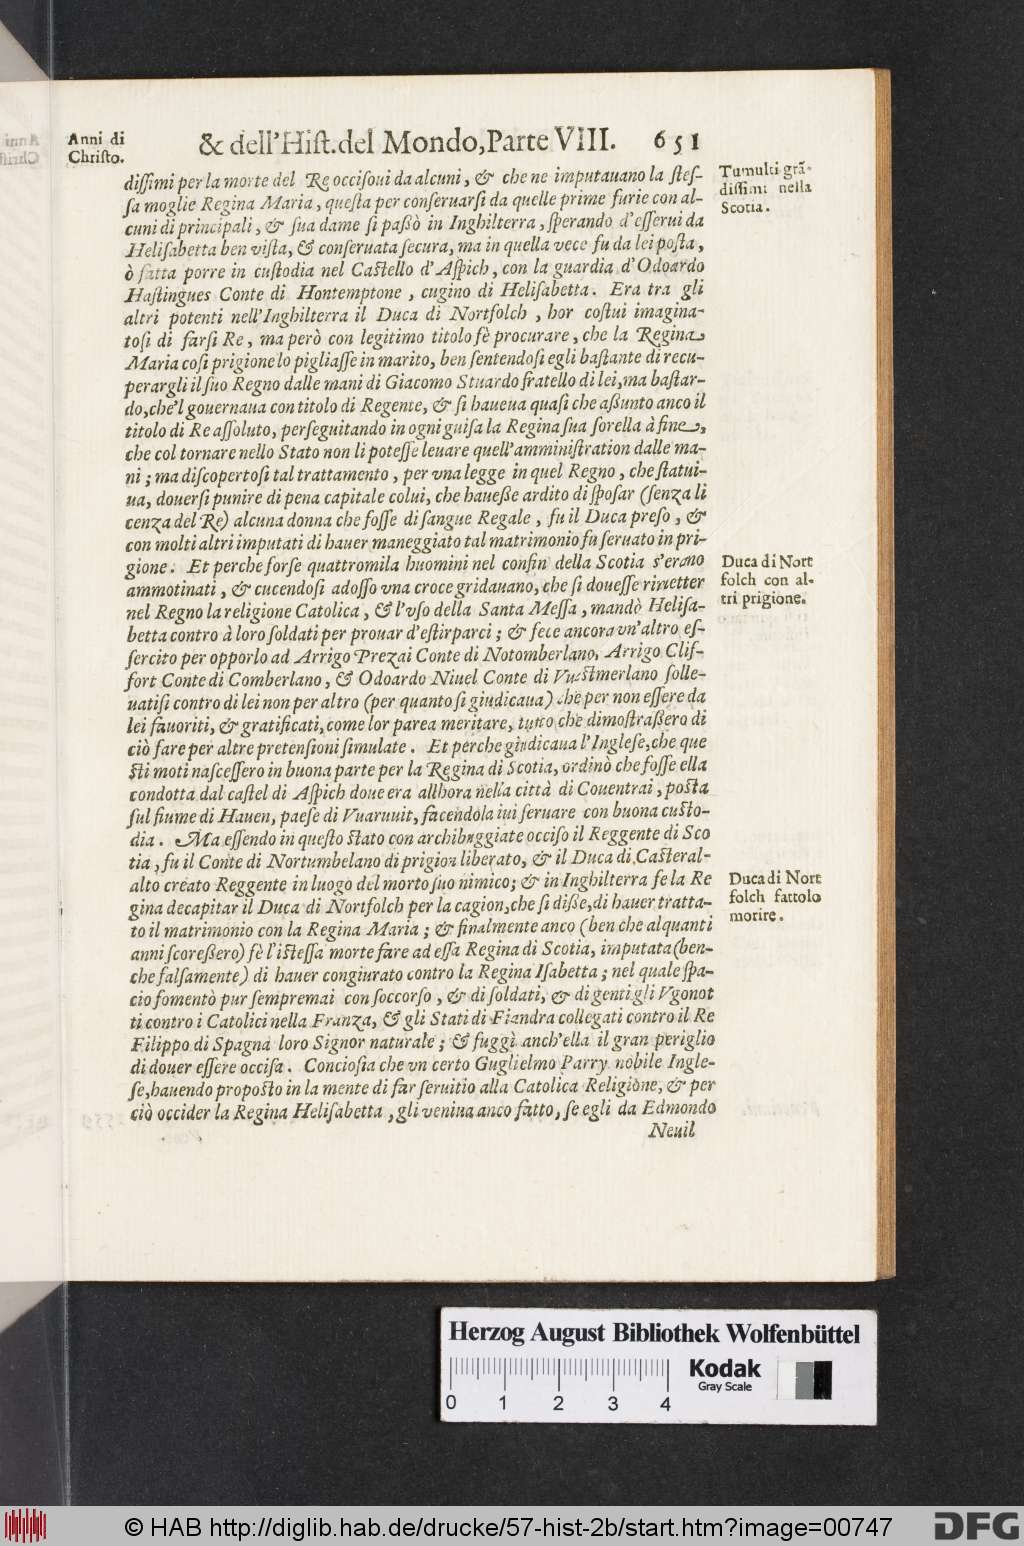 Anni di
Christo.
& dell'Hist. del Mondo, Parte VIII. 651
dissimi per la morte del Re occisoui da alcuni, & che ne imputauano la stes-
sa moglie Regina Maria, questa per conseruarsi da quelle prime furie con al-
cuni di principali, & sua dame si passò in Inghilterra, sperando d'esserui da
Helisabetta ben vista, & conseruata secura, ma in quella vece fu da lei posta,
ò fatta porre in custodia nel Castello d'Aspich, con la guardia d'Odoardo
Hastingues Conte di Hontemptone, cugino di Helisabetta. Era tra gli
altri potenti nell'Inghilterra il Duca di Nortfolch, hor costui imagina-
tosi di farsi Re, ma però con legitimo titolo fè procurare, che la Regina
Maria cosi prigione lo pigliasse in marito, ben sentendosi egli bastante di recu-
perargli il suo Regno dalle mani di Giacomo Stuardo fratello di lei, ma bastar-
do, che'l gouernaua con titolo di Regente, & si haueua quasi che assunto anco il
titolo di Re assoluto, perseguitando in ogni guisa la Regina sua sorella à fine,
che col tornare nello Stato non li potesse leuare quell'amministration dalle ma-
ni; ma discopertosi tal trattamento, per vna legge in quel Regno, che statui-
ua, douersi punire di pena capitale colui, che hauesse ardito di sposar (senza li
cenza del Re) alcuna donna che fosse di sangue Regale, fu il Duca preso, &
con molti altri imputati di hauer maneggiato tal matrimonio fu seruato in pri-
gione. Et perche forse quattromila huomini nel confin della Scotia s'erano
ammotinati, & cucendosi adosso vna croce gridauano, che si douesse rimetter
nel Regno la religione Catolica, & l'vso della Santa Messa, mandò Helisa-
betta contro à loro soldati per prouar d'estirparci; & fece ancora vn'altro es-
sercito per opporlo ad Arrigo Prezai Conte di Notomberlano, Arrigo Clif-
fort Conte di Comberlano, & Odoardo Niuel Conte di Vuestmerlano solle-
uatisi contro di lei non per altro (per quanto si giudicaua) che per non essere da
lei fauoriti, & gratificati, come lor parea meritare, tutto che dimostrassero di
ciò fare per altre pretensioni simulate. Et perche giudicaua l'Inglese, che que
sti moti nascessero in buona parte per la Regina di Scotia, ordinò che fosse ella
condotta dal castel di Aspich doue era allhora nella città di Couentrai, posta
sul fiume di Hauen, paese di Vuaruuit, facendola iui seruare con buona custo-
dia. Ma essendo in questo stato con archibuggiate occiso il Reggente di Sco
tia, fu il Conte di Nortumbelano di prigion liberato, & il Duca di Casteral-
alto creato Reggente in luogo del morto suo nimico; & in Inghilterra fe la Re
gina decapitar il Duca di Nortfolch per la cagion, che si disse, di hauer tratta-
to il matrimonio con la Regina Maria; & finalmente anco (ben che alquanti
anni scoressero) fè l'istessa morte fare ad essa Regina di Scotia, imputata (ben-
che falsamente) di hauer congiurato contro la Regina Isabetta; nel quale spa-
cio fomentò pur sempremai con soccorso, & di soldati, & di genti gli Vgonot
ti contro i Catolici nella Franza, & gli Stati di Fiandra collegati contro il Re
Filippo di Spagna loro Signor naturale; & fuggì anch'ella il gran periglio
di douer essere occisa. Conciosia che vn certo Guglielmo Parry nobile Ingle-
se, hauendo proposto in la mente di far seruitio alla Catolica Religione, & per
ciò occider la Regina Helisabetta, gli veniua anco fatto, se egli da Edmondo
Neuil
Tumulti grã-
dissimi nella
Scotia.
Duca di Nort
folch con al-
tri prigione.
Duca di Nort
folch fattolo
morire.
Herzog August Bibliothek Wolfenbüttel
0 1 2 3 4
Kodak
Gray Scale
© HAB http://diglib.hab.de/drucke/57-hist-2b/start.htm?image=00747
DFG